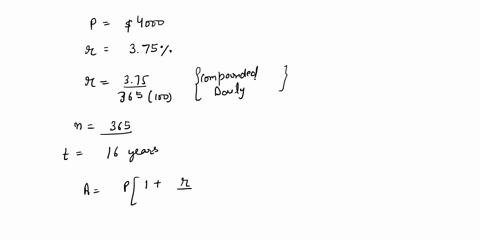 P = $4000
r = 3.75%.
r = 3.75 / 365 (100) { Compounded Daily }
n = 365
t = 16 years
A = P [ 1 + r